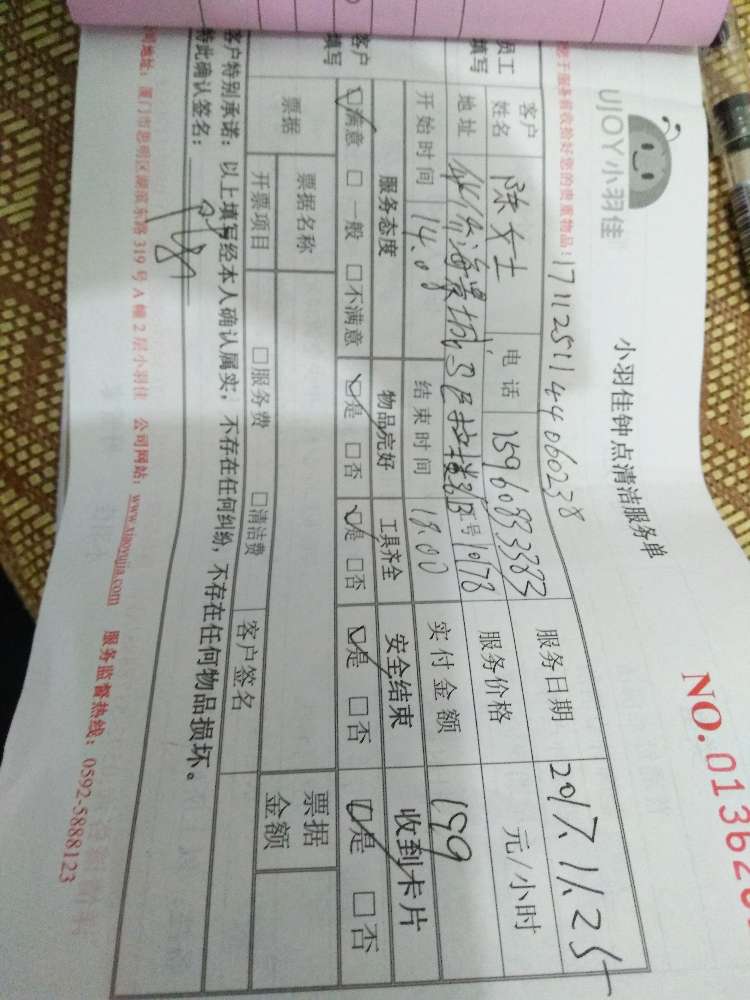 UJOY小羽佳
小羽佳钟点清洁服务单
NO. 01362
您于服务前收拾好您的贵重物品：1711251144060238
员工填写
客户姓名 陈女士 电话 15960833383 服务日期 2017.11.25
地址 海景城 服务价格 元/小时
开始时间 14.00 结束时间 18.00 实付金额 199
客户填写
服务态度 物品完好 工具齐全 安全结束 收到卡片
☑满意 □一般 □不满意 ☑是 □否 ☑是 □否 ☑是 □否 ☑是 □否
票据 票据名称 票据金额
开票项目 □服务费 □清洁费 客户签名
客户特别承诺：以上填写经本人确认属实，不存在任何纠纷，不存在任何物品损坏。
特此确认签名：
司地址：厦门市思明区湖滨东路319号A幢2层小羽佳 公司网站：www.xiaoyujia.com 服务监督热线：0592-5888123